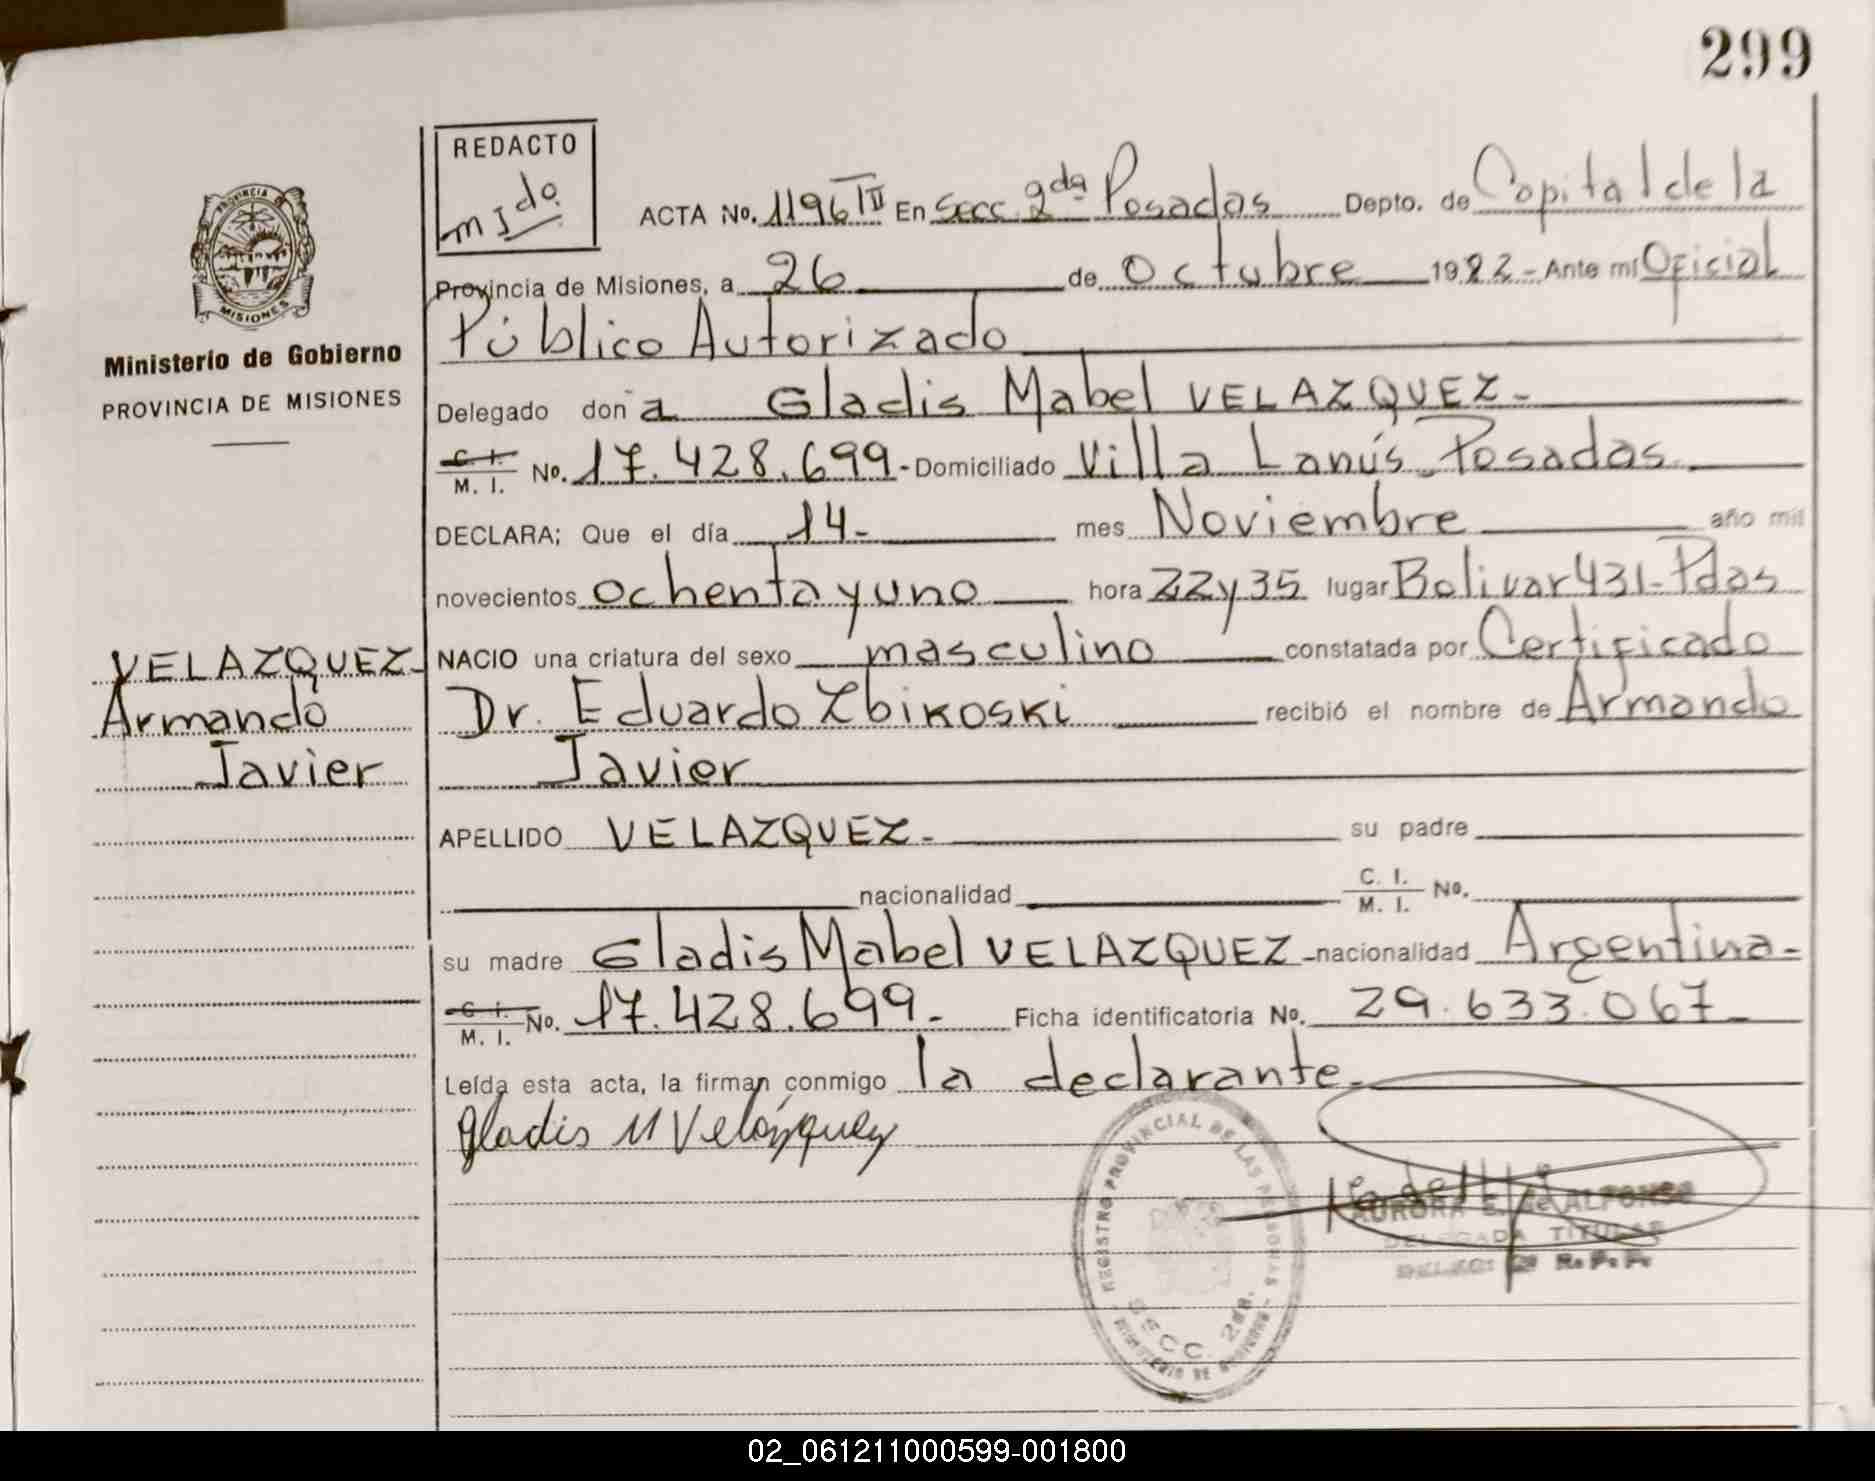 299
REDACTO
mjdo.
PROVINCIA
MISIONES
Ministerio de Gobierno
PROVINCIA DE MISIONES
ACTA No. 1196 III En Secc. 2da Posadas Depto. de Capital de la
Provincia de Misiones, a 26 de Octubre 1982 - Ante mi Oficial
Público Autorizado
Delegado don a Gladis Mabel VELAZQUEZ -
C. I.
M. I. No. 17.428.699 - Domiciliado Villa Lanús - Posadas
DECLARA; Que el día 14 - mes Noviembre año mil
novecientos ochenta y uno hora 22 y 35 lugar Bolivar 431 - Pdas
NACIO una criatura del sexo masculino constatada por Certificado
Dr. Eduardo Zbikoski recibió el nombre de Armando
Javier
VELAZQUEZ -
Armando
Javier
APELLIDO VELAZQUEZ - su padre
nacionalidad C. I.
M. I. No.
su madre Gladis Mabel VELAZQUEZ - nacionalidad Argentina -
C. I.
M. I. No. 17.428.699 - Ficha identificatoria No. 29.633.067 -
Leída esta acta, la firman conmigo la declarante -
Gladis M Velázquez
REGISTRO PROVINCIAL DE LAS PERSONAS
SECC. 2da.
AURORA E. de ALFONSO
DELEGADA TITULAR
R. P. P.
02_061211000599-001800